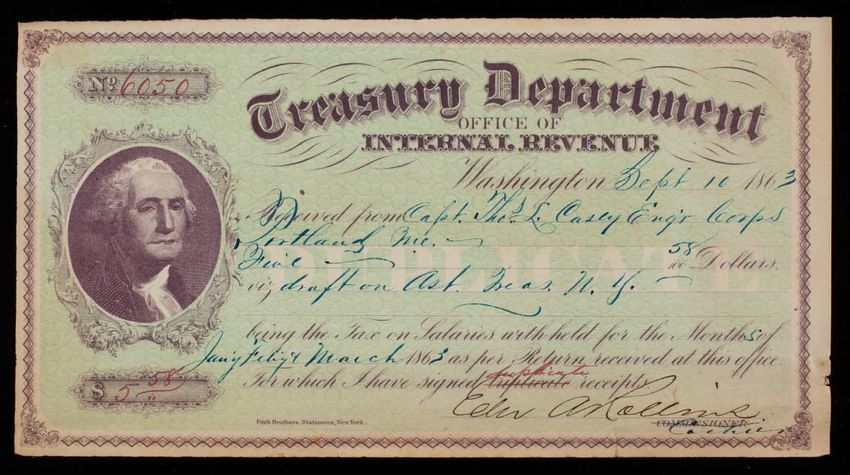 No 6050
Treasury Department
OFFICE OF
INTERNAL REVENUE
Washington Sept 10 1863
Received from Capt. Thos. L. Casey Engr Corps
Portland Me.
Five 58/100 Dollars,
viz draft on Ast. Treas. N. Y.
DUPLICATE
being the Tax on Salaries withheld for the Months of
Jany Feby & March 1863 as per Return received at this office.
For which I have signed duplicate receipts
$ 5 58
COMMISSIONER
Cashier
Fitch Brothers, Stationers, New York.